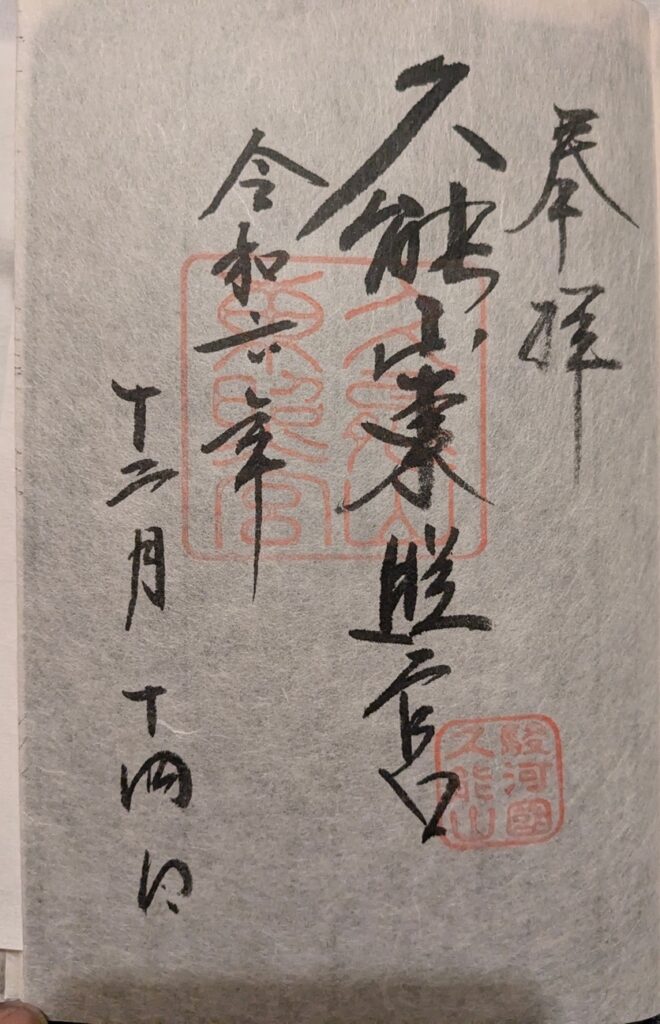 奉拝
久能山東照宮
令和六年
十二月十四日
久能山
東照宮
駿河國
久能山